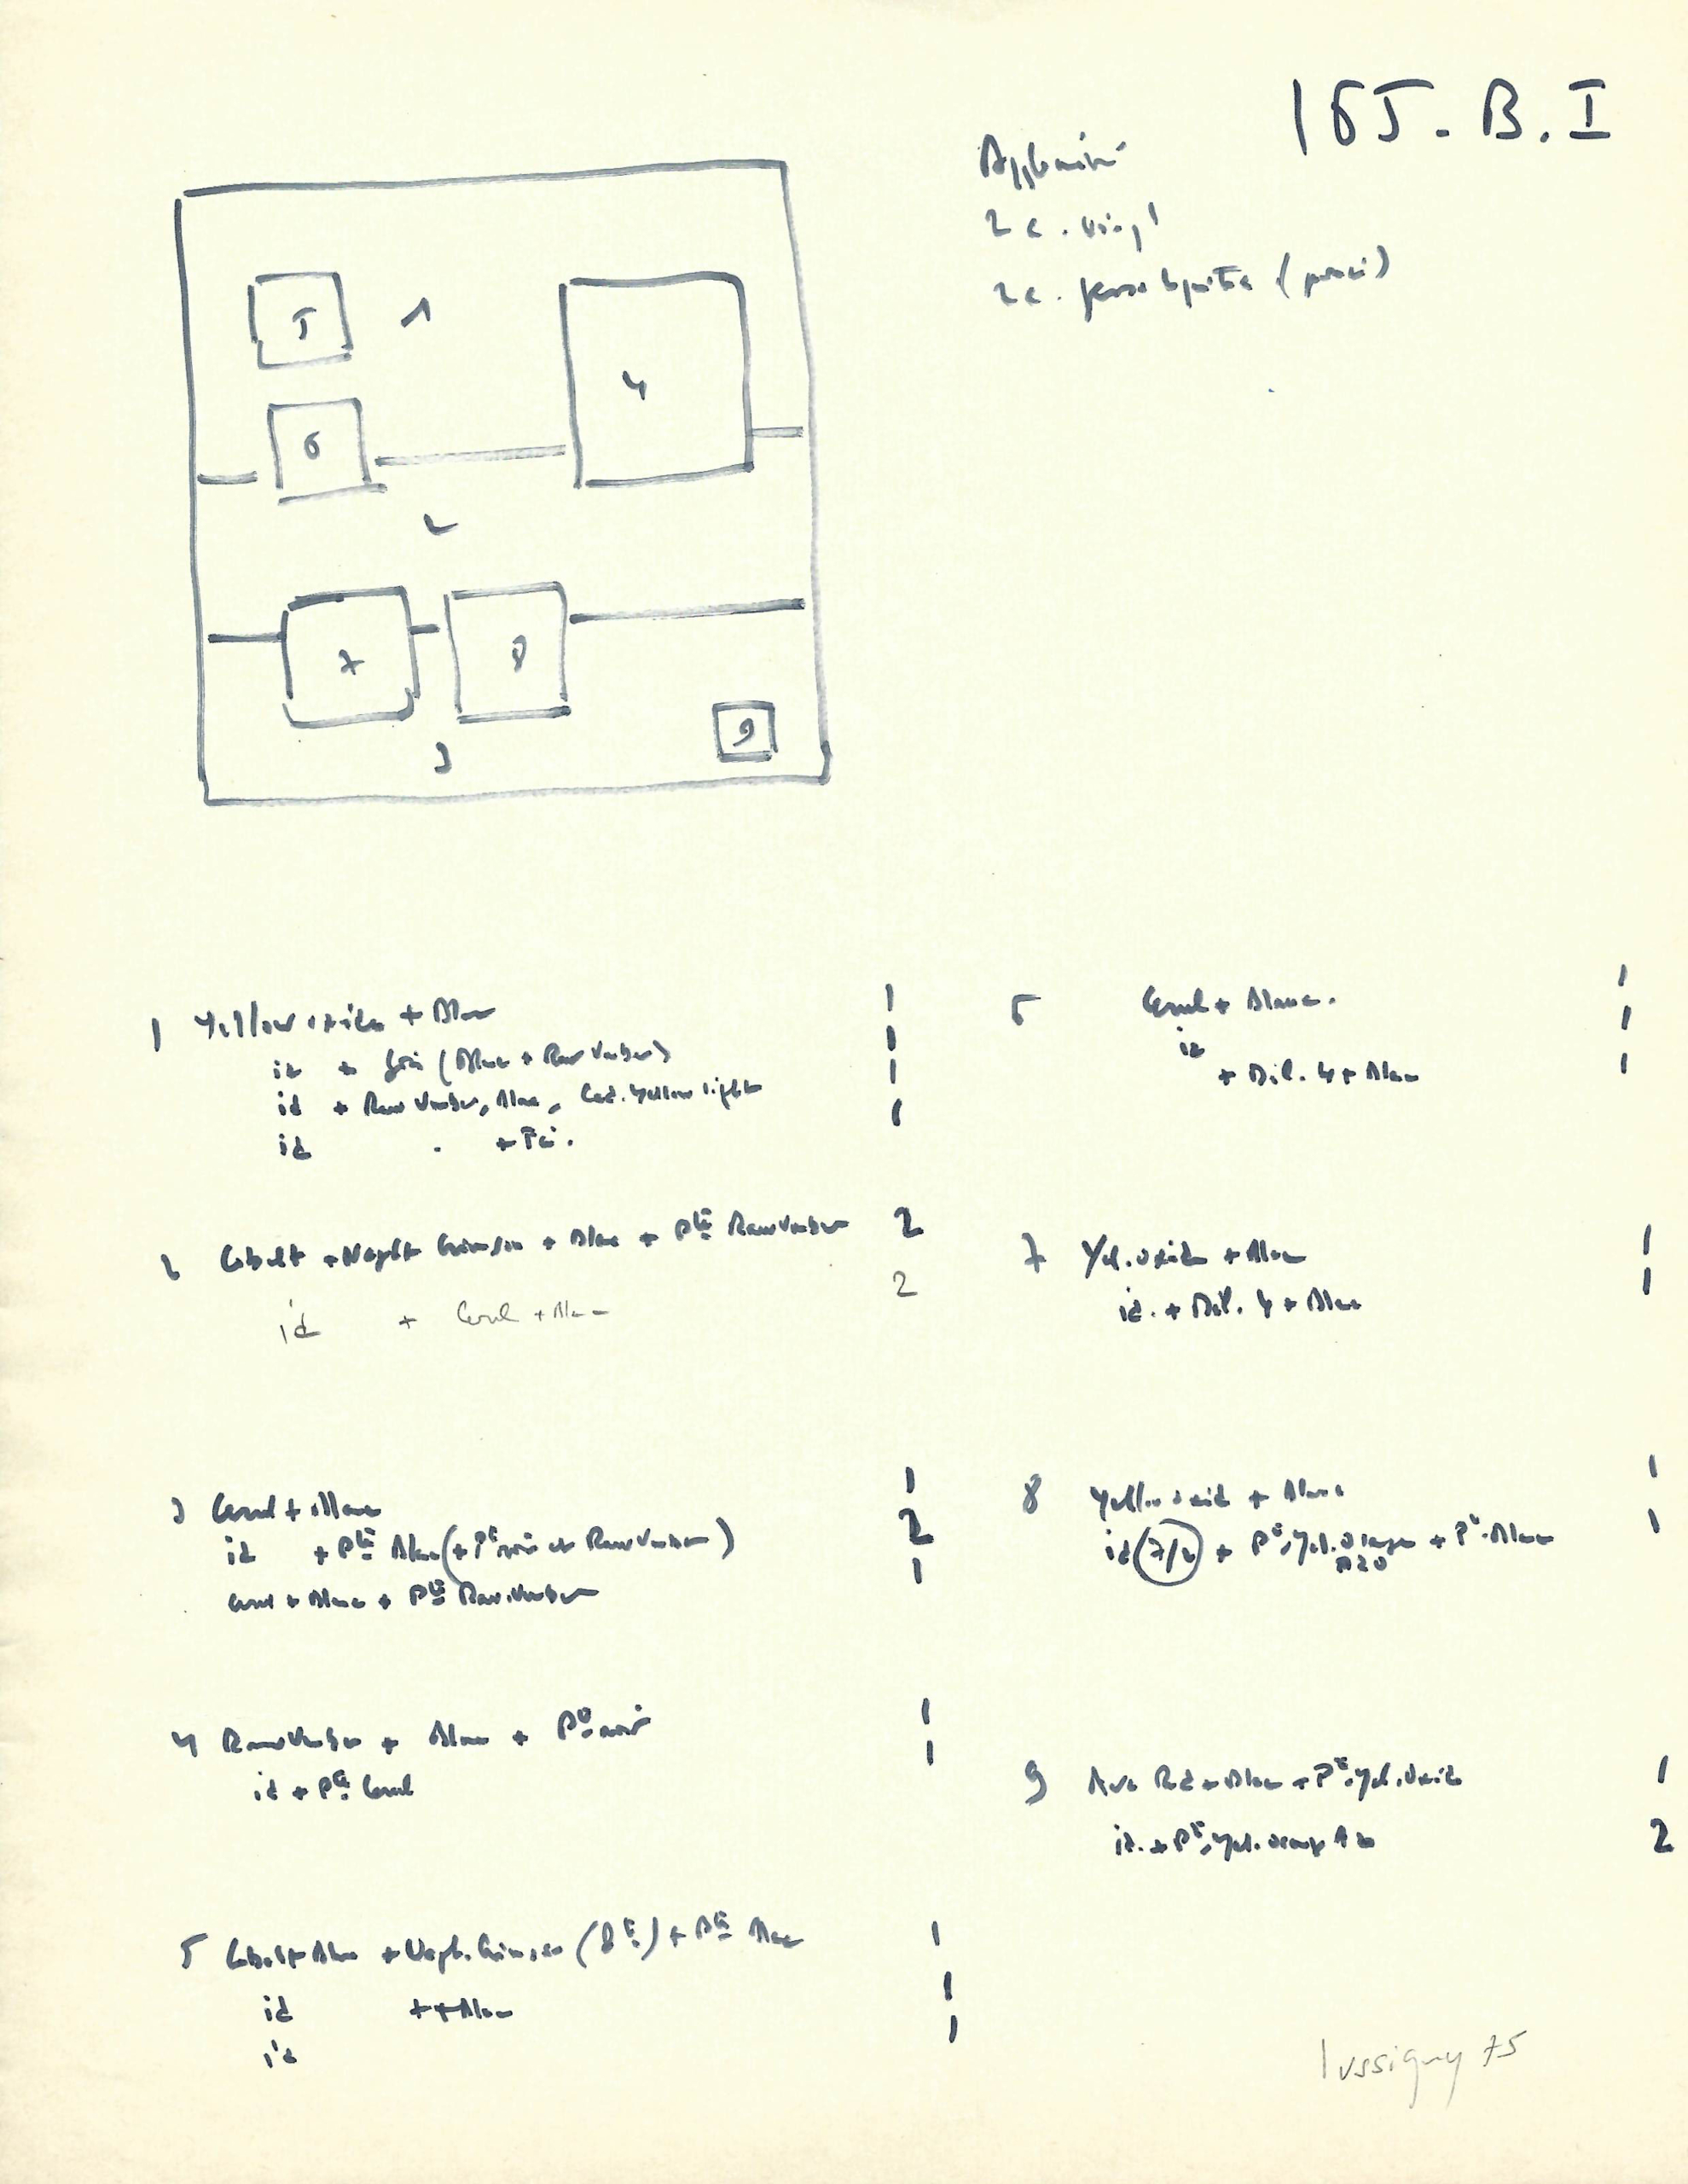 165. B. I
2 c. vinyl
2 c.
5
1
4
6
2
7
8
3
9
1 Yellow oxide + Blanc
id + gris (Blanc + Raw Umber)
id + Raw Umber, Blanc, Cad. Yellow light
id . +
1
1
1
1
2 Cobalt + Napht Crimson + Blanc + Pte Raw Umber 2
id + Cerul + Blanc 2
3 Cerul + Blanc 1
id + Pte Blanc (+ Pt noir et Raw Umber) 2
Cerul + Blanc + Pte Raw Umber 1
4 Raw Umber + Blanc + Pte noir 1
id + Pte Cerul 1
5 Cobalt + Blanc + Napht. Crimson (Pte) + Pte Blanc 1
id ++ Blanc 1
id 1
6 Cerul + Blanc. 1
id 1
+ Dil. 4 + Blanc 1
7 Yel. oxide + Blanc 1
id. + Dil. 4 + Blanc 1
8 Yell. oxid + Blanc 1
id (7/2) + Pte Yel. orange + Pt. Blanc 1
AZO
9 Red + Blanc + Pte Yel. Oxide 1
id. + Pte Yel. orange Azo 2
Lussigny 75